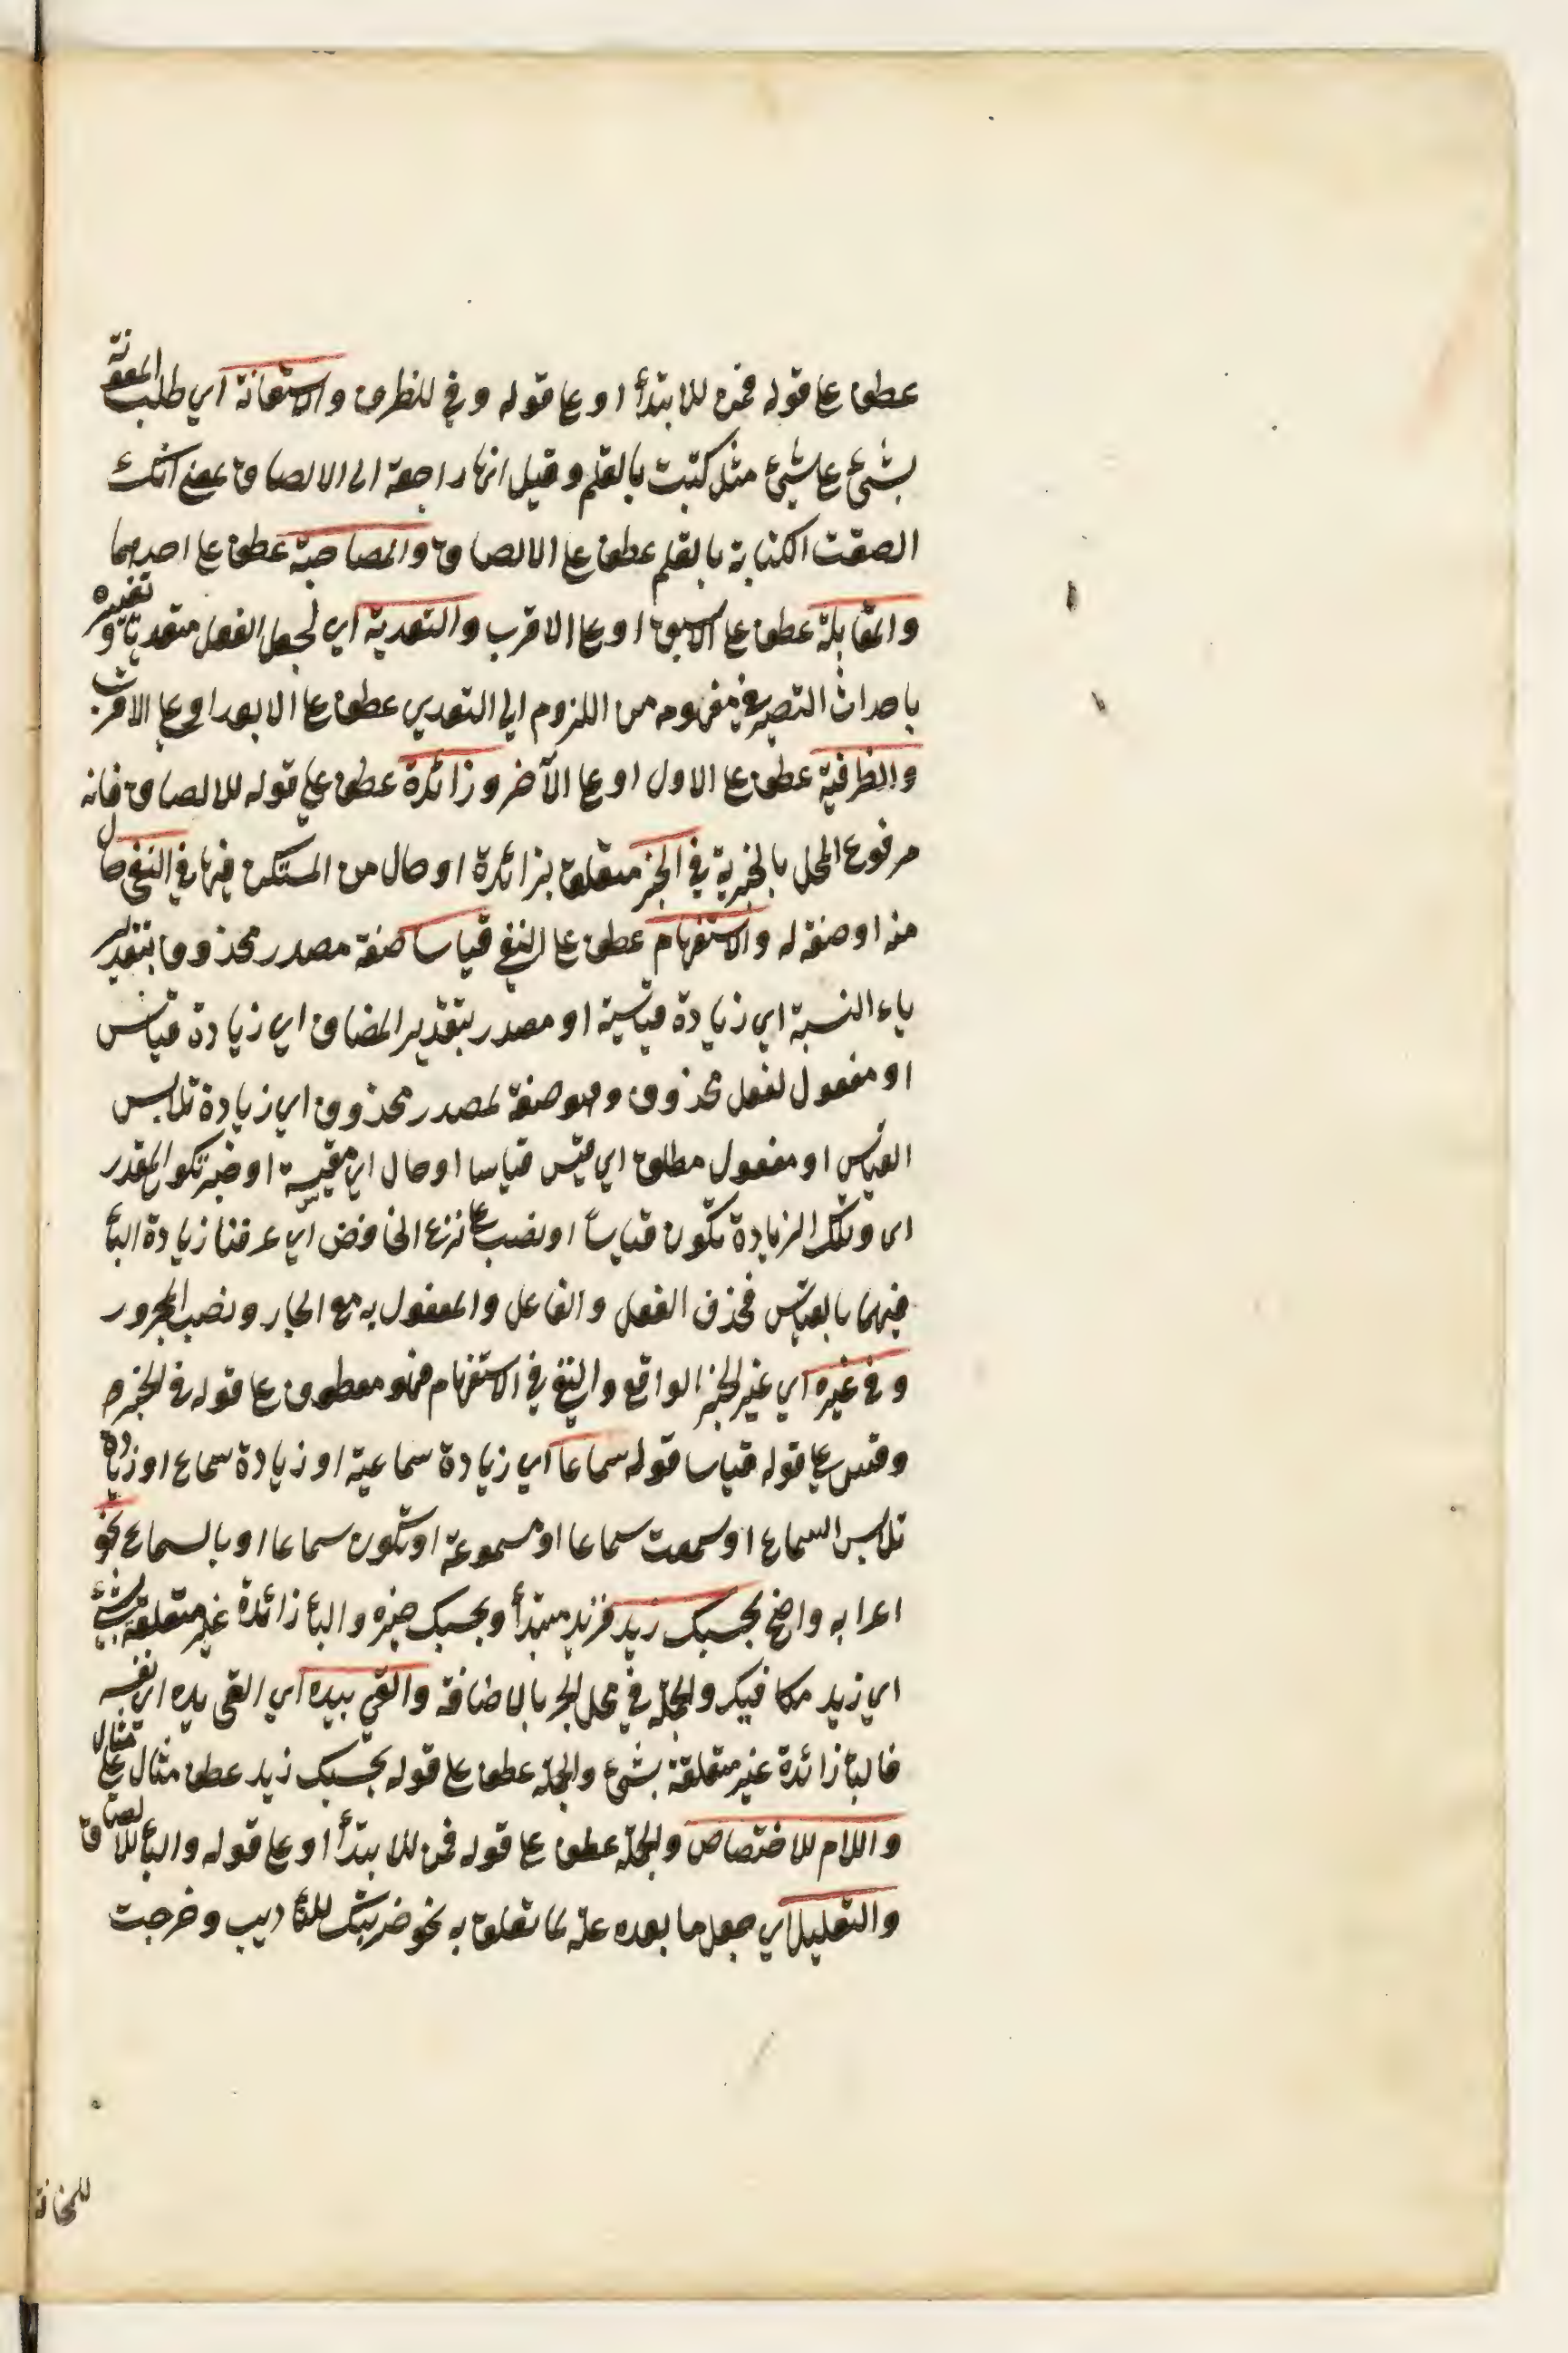 عطف على قوله فمن للابتدأ او على قوله وفي للظرف والاستعانة اي طلب المعونة
بشئ على شئ مثل كتبت بالقلم وقيل انها راجعة الى الالصاق بمعنى انك
الصقت الكتابة بالقلم عطف على الالصاق والمصاحبة عطف على احدهما
والمقابلة عطف على الاسبق او على الاقرب والتعدية اي لجعل الفعل متعديا وتغييره
باحداث التصيير في مفهومه من اللزوم الى التعدي عطف على الابعد او على الاقرب
والظرفية عطف على الاول او على الآخر وزائدة عطف على قوله للالصاق فانه
مرفوع المحل بالخبرية في الخبر متعلق بزائدة او حال من المستكن فيها في النفي حال
منه او صفة له والاستفهام عطف على النفي قياسا صفة مصدر محذوف بتقدير
ياء النسبة اي زيادة قياسية او مصدر بتقدير المضاف اي زيادة قياس
او مفعول لفعل محذوف وهو صفة لمصدر محذوف اي زيادة تلابس
القياس او مفعول مطلق اي قيس قياسا او حال اي مقيسة او خبر تكون المقدر
اى وتلك الزيادة تكون قياسا او نصب على نزع الخافض اي عرفنا زيادة البأ
فيهما بالقياس فحذف الفعل والفاعل والمفعول به مع الجار ونصب المجرور
وفي غيره اي غير الخبر الواقع والنفي في الاستفهام فهو معطوف على قوله في الخبر
وقس على قوله قياسا قوله سماعا اي زيادة سماعية او زيادة سماع او زيادة
تلابس السماع او سمعت سماعا او مسموعة او تكون سماعا او بالسماع نحو
اعرابه واضح بحسبك زيد فزيد مبتدأ وبحسبك خبره والبأ زائدة غير متعلقة بشئ
اي زيد مكافيك والجملة في محل الجر بالاضافة والقى بيده اي القى يده اي نفسه
فالبأ زائدة غير متعلقة بشئ والجملة عطف على قوله بحسبك زيد عطف مثال على مثال
واللام للاختصاص والجملة عطف على قوله فمن للابتدأ او على قوله والبأ للالصاق
والتعليل اي جعل ما بعده علة لما تعلق به نحو ضربتك للتأديب وخرجت
للمخافة